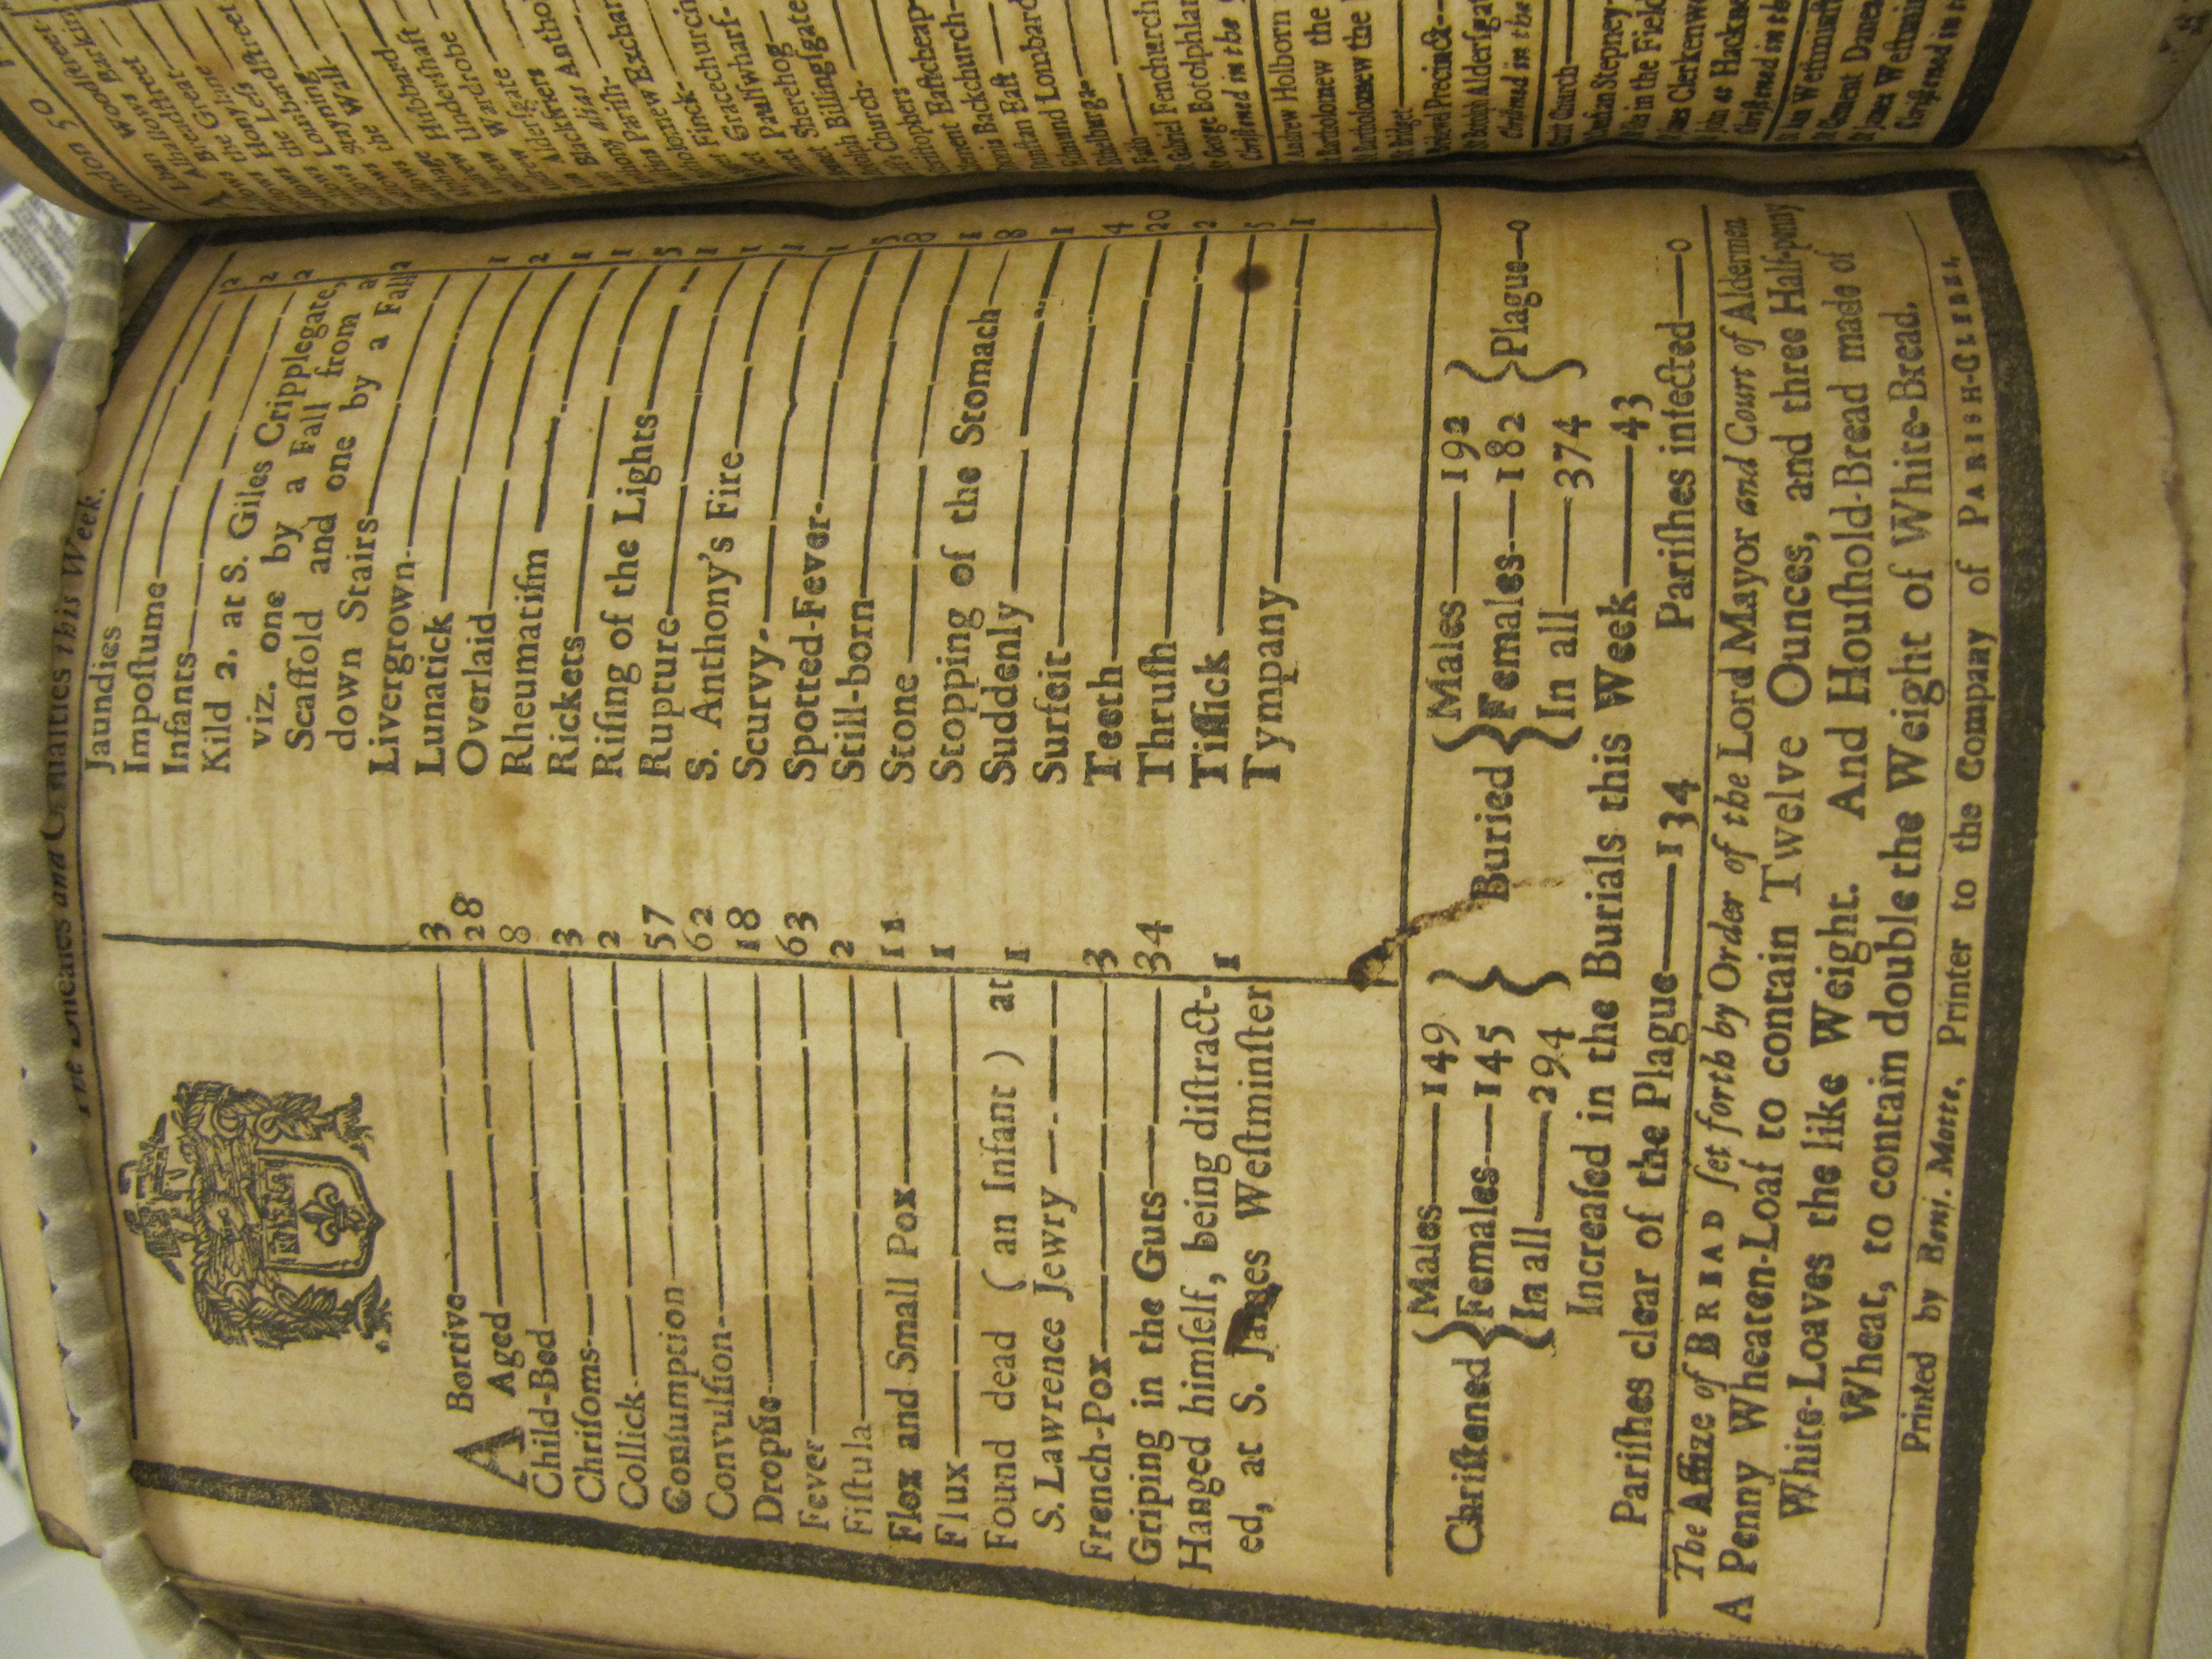 The Diseases and Casualties this Week.
ABortive 3
Aged 28
Child-Bed 8
Chriſoms 3
Collick 2
Conſumption 57
Convulſion 62
Dropſie 18
Fever 63
Fiſtula 2
Flox and Small Pox 11
Flux 1
Found dead (an Infant) at
S. Lawrence Jewry 1
French-Pox 3
Griping in the Guts 34
Hanged himſelf, being diſtract-
ed, at S. James Weſtminſter 1
Jaundies 2
Impoſtume 2
Infants 2
Kild 2, at S. Giles Cripplegate,
viz. one by a Fall from a
Scaffold and one by a Fall
down Stairs 2
Livergrown 1
Lunatick 2
Overlaid 1
Rheumatiſm 1
Rickets 5
Riſing of the Lights 1
Rupture 1
S. Anthony's Fire 1
Scurvy 1
Spotted-Fever 5
Still-born 8
Stone 1
Stopping of the Stomach 8
Suddenly 1
Surfeit 4
Teeth 20
Thruſh 2
Tiſſick 5
Tympany 1
Chriſtened Males 149 Females 145 In all 294 Buried Males 192 Females 182 In all 374 Plague 0
Increaſed in the Burials this Week 43
Pariſhes clear of the Plague 134 Pariſhes infected 0
The Aſſize of BREAD ſet forth by Order of the Lord Mayor and Court of Aldermen
A Penny Wheaten-Loaf to contain Twelve Ounces, and three Half-penny
White-Loaves the like Weight. And Houſhold-Bread made of
Wheat, to contain double the Weight of White-Bread.
Printed by Benj. Motte, Printer to the Company of PARISH-CLERKS.
London 50
Alban Woodſtreet
Alhallows Barkin
Breadſtreet
Great
Honylane
Leſs
Lombardſtreet
Staying
the Wall
Hubbard
Underſhaft
Wardrobe
Alderſgate
Blackfriers
Pariſh
Exchan
Finck
Gracechurch
Paulſwharf
Sherehog
Billingſgate
Church
Eaſtcheap
Backchurch
Dunſtan Eaſt
Edmund Lombard
Ethelburga
Faith
Gabriel Fenchurch
George Botolphlan
Chriſtned in the
Andrew Holborn
Bartholomew the
Bartholomew the
Bridget
Bridewel Precinct
Botolph Alderſgat
Chriſtned in the
Chriſt Church
Dunſtan Stepney
Giles in the Field
James Clerkenwe
John at Hackne
Chriſtned in the
Clement Danes
St James Weſtmin
Chriſtned in th